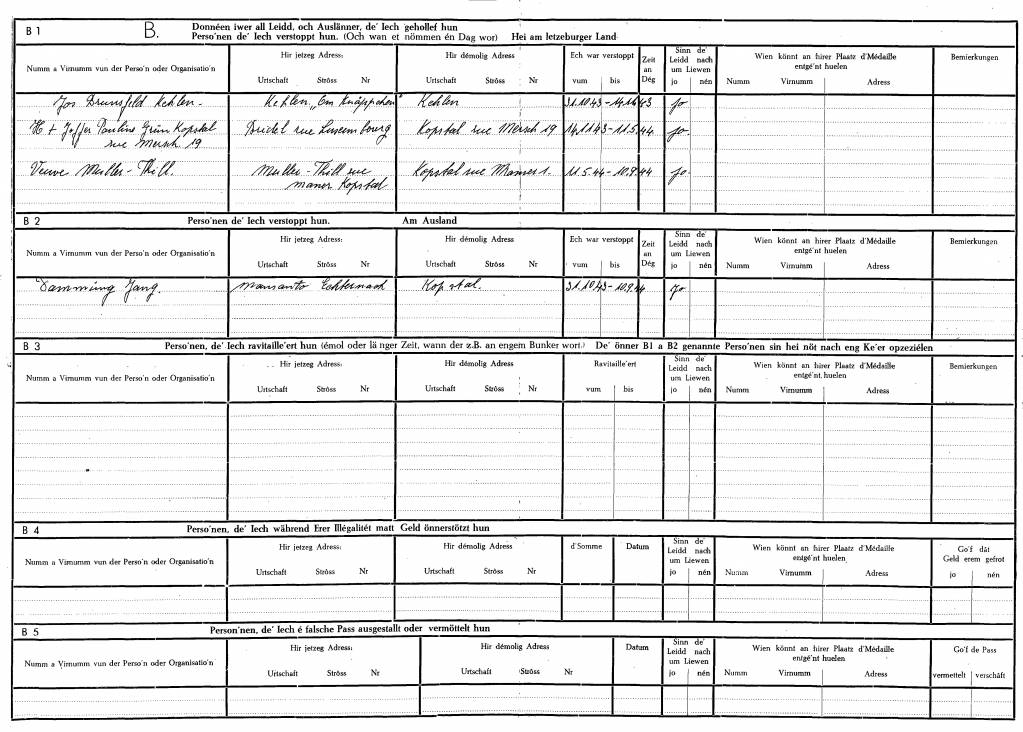 B 1 B. Donnéen iwer all Leidd, och Auslänner, de' Iech gehollef hun
Perso'nen de' Iech verstopt hun. (Och wan et nömmen én Dag wor) Hei am letzeburger Land
Numm a Virnumm vun der Perso'n oder Organisatio'n
Hir jetzeg Adress:
Urtschaft Ströss Nr
Hir démolig Adress
Urtschaft Ströss Nr
Ech war verstoppt
vum bis
Zeit
an
Dég
Sinn de'
Leidd nach
um Liewen
jo nén
Wien könnt an hirer Plaatz d'Médaille
entgé'nt huelen
Numm Virnumm Adress
Bemierkungen
Jos Drunsfeld Kehlen. Kehlen „Om Knäppchen" Kehlen 31.10.43 - 14.11.43 jo
H + Joffer Pauline Grün Kopstal Bridel rue Luxembourg Kopstal rue Mersch 19 14.11.43 - 11.5.44 jo
rue Mersch 19
Veuve Muller - Thill. Muller - Thill rue Kopstal rue Mamer 1. 11.5.44 - 10.9.44 jo
mamer Kopstal
B 2 Perso'nen de' Iech verstoppt hun. Am Ausland
Numm a Virnumm vun der Perso'n oder Organisatio'n
Hir jetzeg Adress:
Urtschaft Ströss Nr
Hir démolig Adress
Urtschaft Ströss Nr
Ech war verstoppt
vum bis
Zeit
an
Dég
Sinn de'
Leidd nach
um Liewen
jo nén
Wien könnt an hirer Plaatz d'Médaille
entgé'nt huelen
Numm Virnumm Adress
Bemierkungen
Jang. Echternach Kopstal. 31.10.43 - 10.9.44 Jo
B 3 Perso'nen, de' Iech ravitaille'ert hun (émol oder länger Zeit, wann der z.B. an engem Bunker wort.) De' önner B1 a B2 genannte Perso'nen sin hei nöt nach eng Ke'er opzeziélen
Numm a Virnumm vun der Perso'n oder Organisatio'n
Hir jetzeg Adress:
Urtschaft Ströss Nr
Hir démolig Adress
Urtschaft Ströss Nr
Ravitaille'ert
vum bis
Sinn de'
Leidd nach
um Liewen
jo nén
Wien könnt an hirer Plaatz d'Médaille
entgé'nt huelen
Numm Virnumm Adress
Bemierkungen
B 4 Perso'nen, de' Iech während Erer Illégalitét matt Geld önnerstötzt hun
Numm a Virnumm vun der Perso'n oder Organisatio'n
Hir jetzeg Adress:
Urtschaft Ströss Nr
Hir démolig Adress
Urtschaft Ströss Nr
d'Somme
Datum
Sinn de'
Leidd nach
um Liewen
jo nén
Wien könnt an hirer Plaatz d'Médaille
entgé'nt huelen
Numm Virnumm Adress
Go'f dât
Geld erem gefrot
jo nén
B 5 Person'nen, de' Iech é falsche Pass ausgestallt oder vermöttelt hun
Numm a Virnumm vun der Perso'n oder Organisatio'n
Hir jetzeg Adress:
Urtschaft Ströss Nr
Hir démolig Adress
Urtschaft Ströss Nr
Datum
Sinn de'
Leidd nach
um Liewen
jo nén
Wien könnt an hirer Plaatz d'Médaille
entgé'nt huelen
Numm Virnumm Adress
Go'f de Pass
vermettelt verschäft